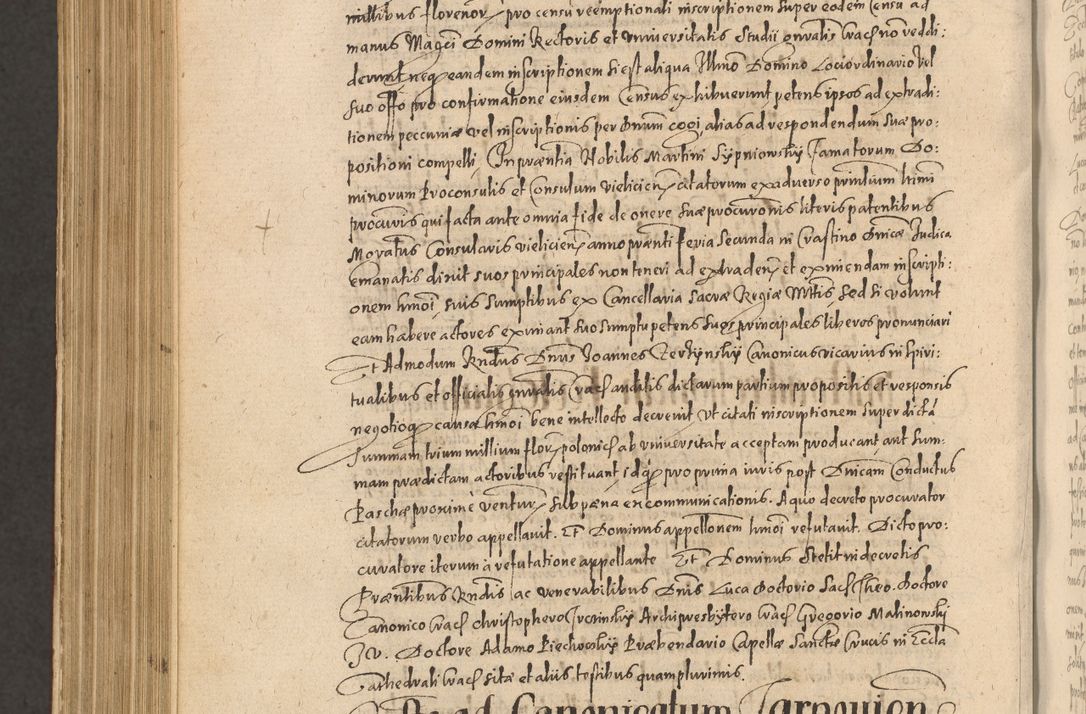 millibus florenor pro censu reemptionali inscriptionem super eodem censu ad
manus Magci Domini Rectoris et Universitatis Studii gnralis Crac no reddi:
derunt neq eandem inscriptionem si est aliqua Illmo Domino Lociordinario vel
suo offo pro confirmatione eiusdem Census exhibuerunt, petens ipsos ad extradi:
tionem peccuniæ vel inscriptionis per Dnum cogi, alias ad respondendum suæ pro:
positioni compelli, In præntia Nobilis Martini Sypniowsky Famatorum Do:
minorum Proconsulis et Consulum vielicien citatorum ex adverso prinlium hmoi
procuris qui facta ante omnia fide de onere suæ procuronis literis patentibus
Moratus Consularis vielicien anno prænti feria Secunda in Crastino Dnicæ Iudica
emanatis dixit suos principales non teneri ad extraden et eximendam inscripti:
onem hmoi, suis sumptibus ex Cancellaria Sacræ Regiæ Mttis, sed si volunt
eam habere actores eximant suo sumptu petens suos principales liberos pronunciari
Et Admodum Rndus Dnus Joannes Canonicus vicarius in spiri:
tualibus et officialis gnralis Crac auditis dictarum partium propositis et responsis
negotioq causæ hmoi bene intellecto decrevit ut citati inscriptionem super dicta
summam trium millium flor polonic ab universitate acceptam producant, aut sum:
mam prædictam actoribus restituant, idq pro prima iuris post Dnicam Conductus
Paschæ proxime ventur sub pæna excommunicationis. A quo decreto procurator
citatorum verbo appellavit. Et Dominus appellonem hmoi refutavit. Dicto pro:
curatore iterum a refutatione appellante Et Dominus stetit in decretis
Præntibus Rndis ac venerabilibus Dnis Luca Doctorio Sac Theo. Doctore
Canonico Crac Christophero Archipresbytero Crac Gregorio Malinowsky
J. V. Doctore Adamo Piechowsky Præbendario Capellæ Sanctæ Crucis in Eccla
Cathedrali Crac sitæ et aliis testibus quamplurimis.
Ad Canonicatum Tarnovien